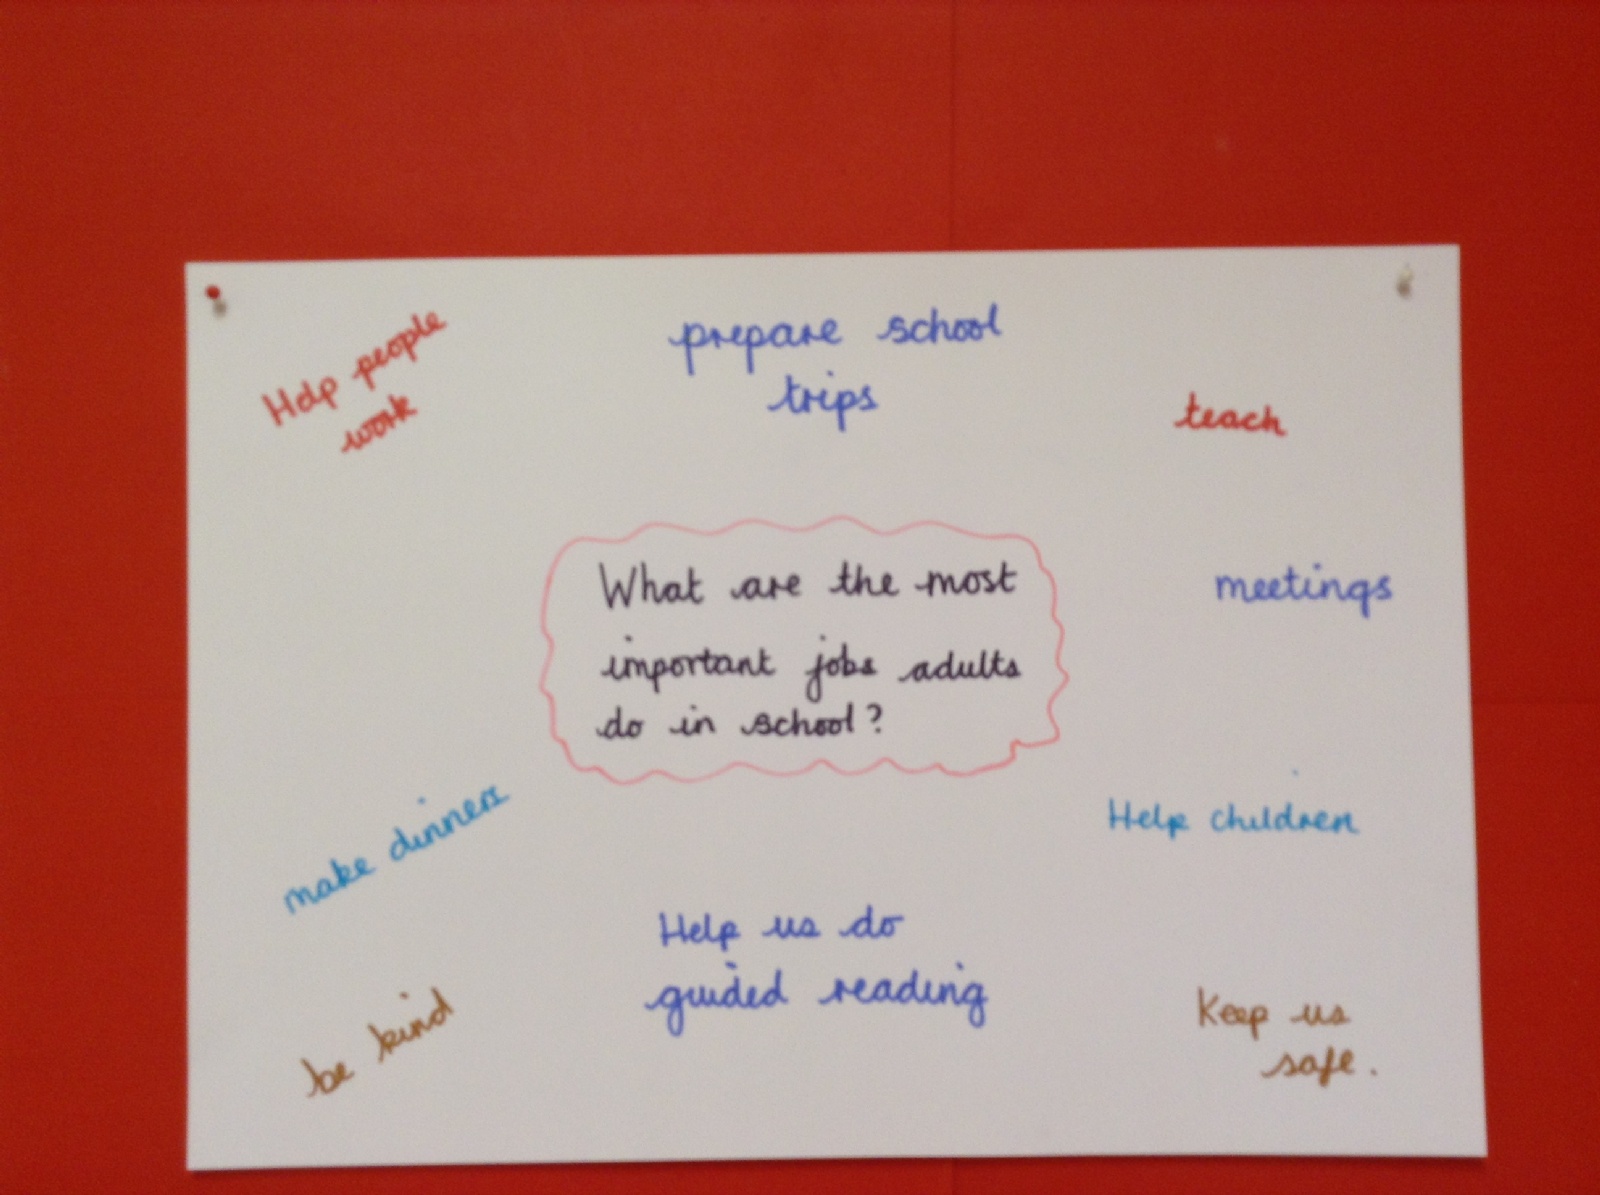 Help people
work
prepare school
trips
teach
What are the most
important jobs adults
do in school?
meetings
make dinners
Help children
Help us do
guided reading
be kind
Keep us
safe.